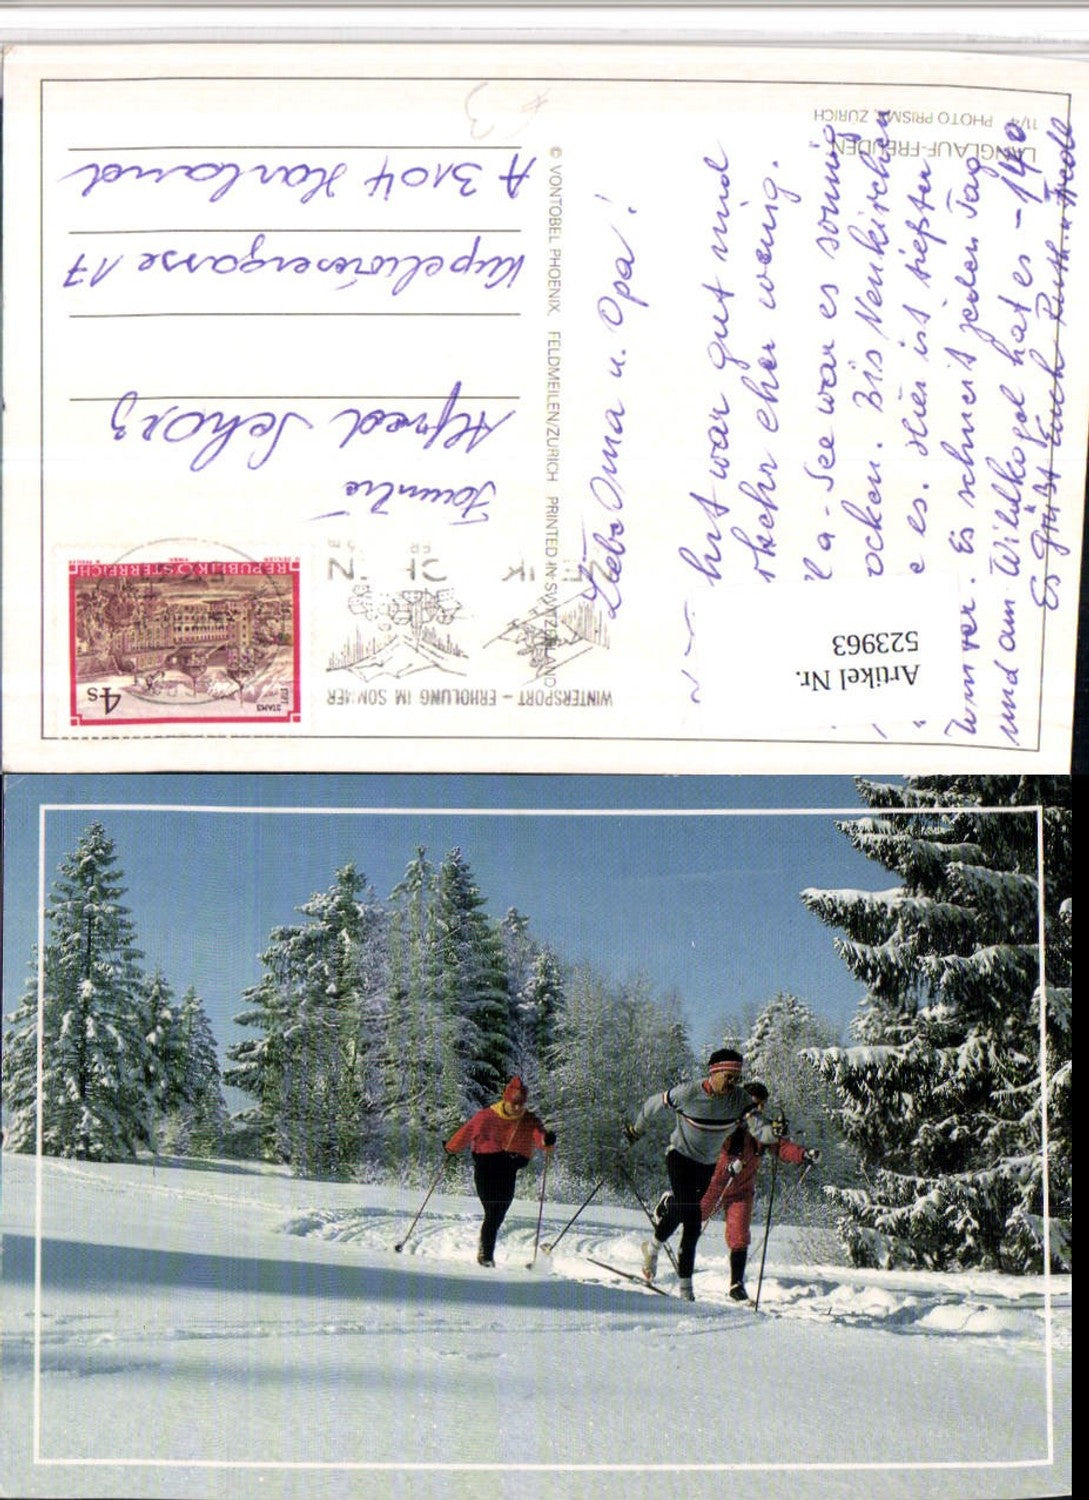 LANGLAUF-FREUDEN
11/4 PHOTO PRISMA, ZÜRICH
Liebe Oma u. Opa!
hrt war gut und
rkehr eher wenig.
la-See war es sonnig
ocken. Bis Neukirchen
e es. Hier ist tiefster
Winter. Es schneit jeden Tag
und am Wildkogel hat es -14°
Es grüßt Euch Ruth u. Fredl
Artikel Nr.
523963
© VONTOBEL PHOENIX, FELDMEILEN/ZÜRICH PRINTED IN SWITZERLAND
WINTERSPORT – ERHOLUNG IM SOMMER
4s
STIFT
STAMS
REPUBLIK ÖSTERREICH
Familie
Alfred Schorz
Kupelwiesergasse 17
A 3104 Harland